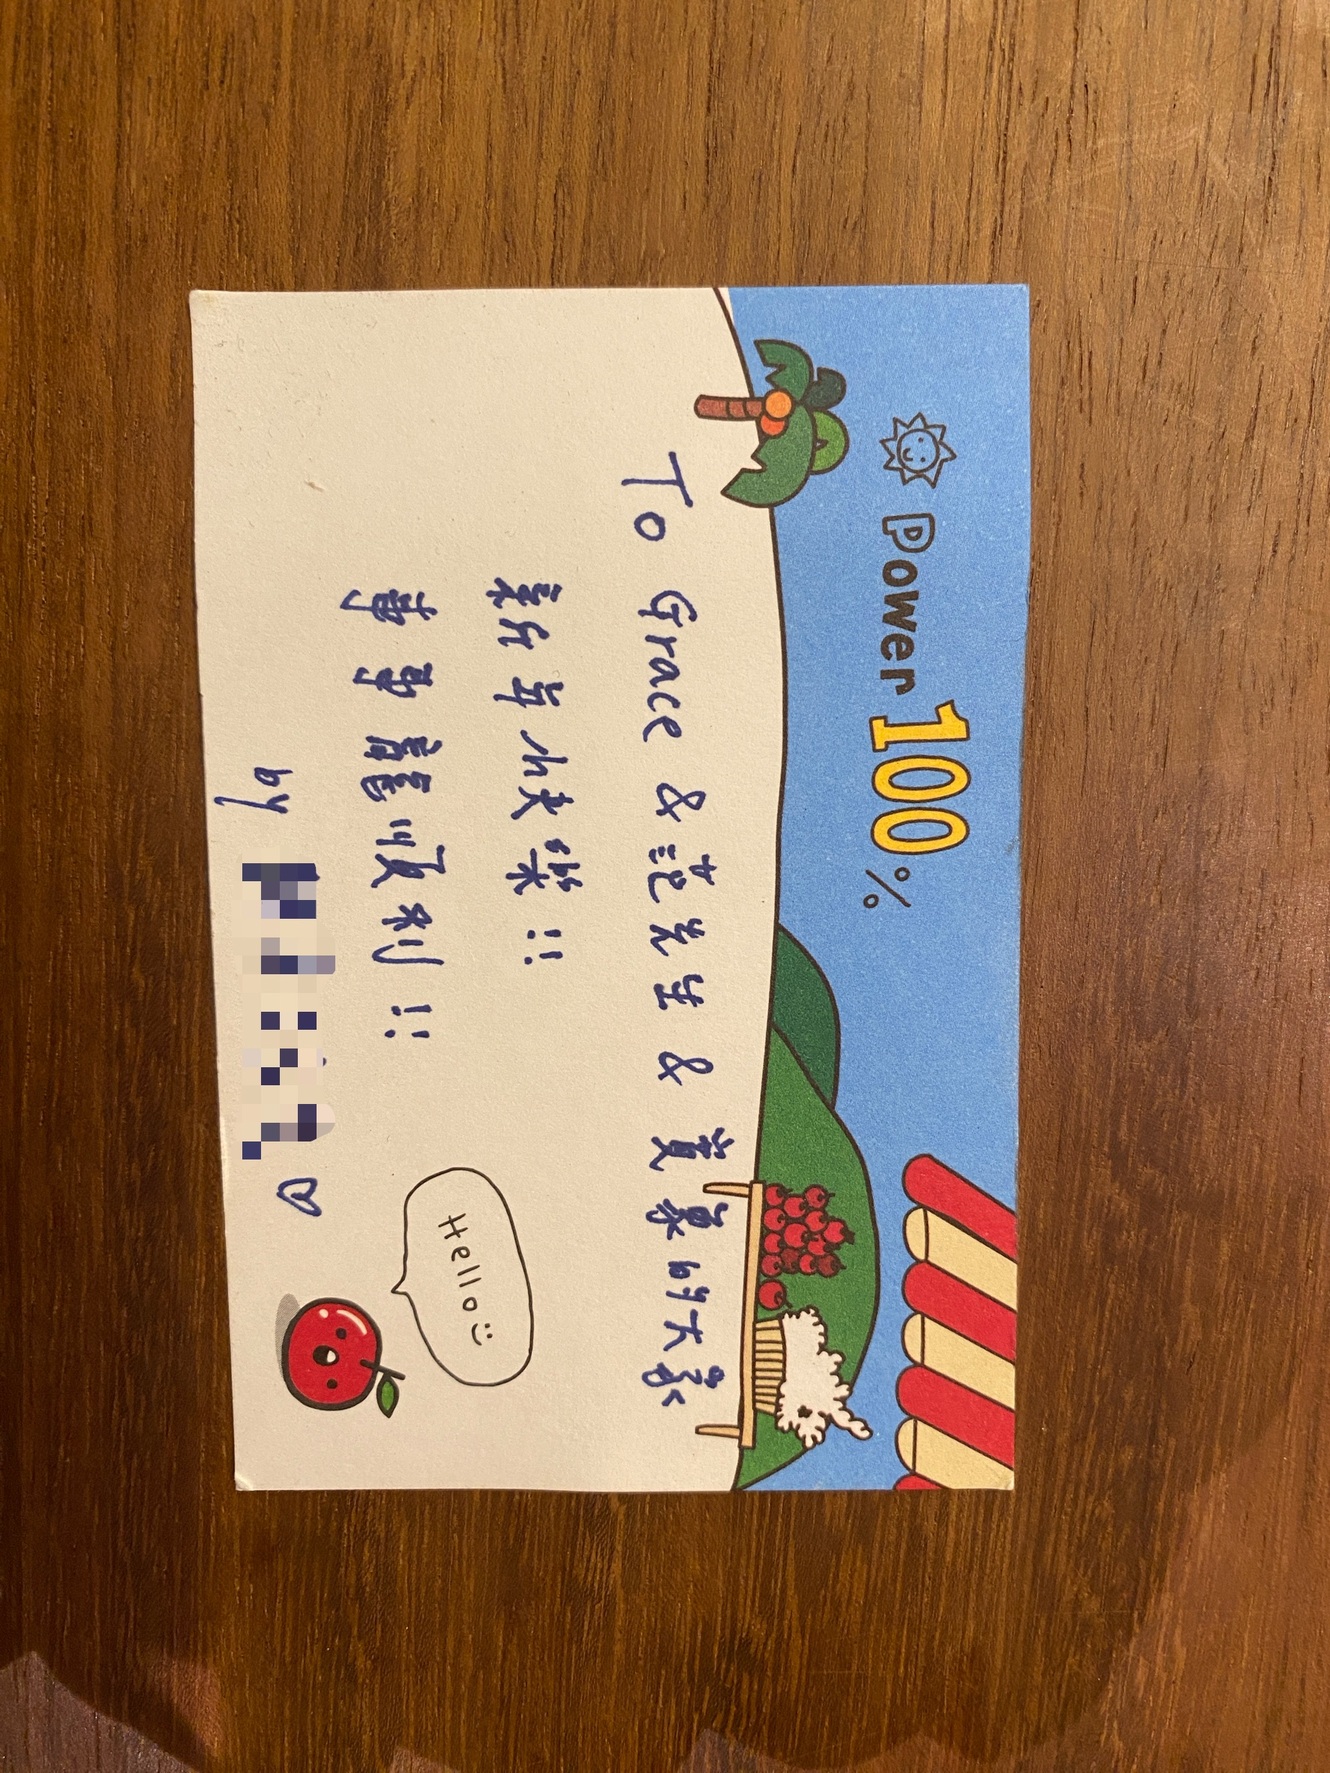 Power 100%
To Grace & 范先生 & 真禾的大家
新年快樂!!
事事龍順利!!
by
Hello